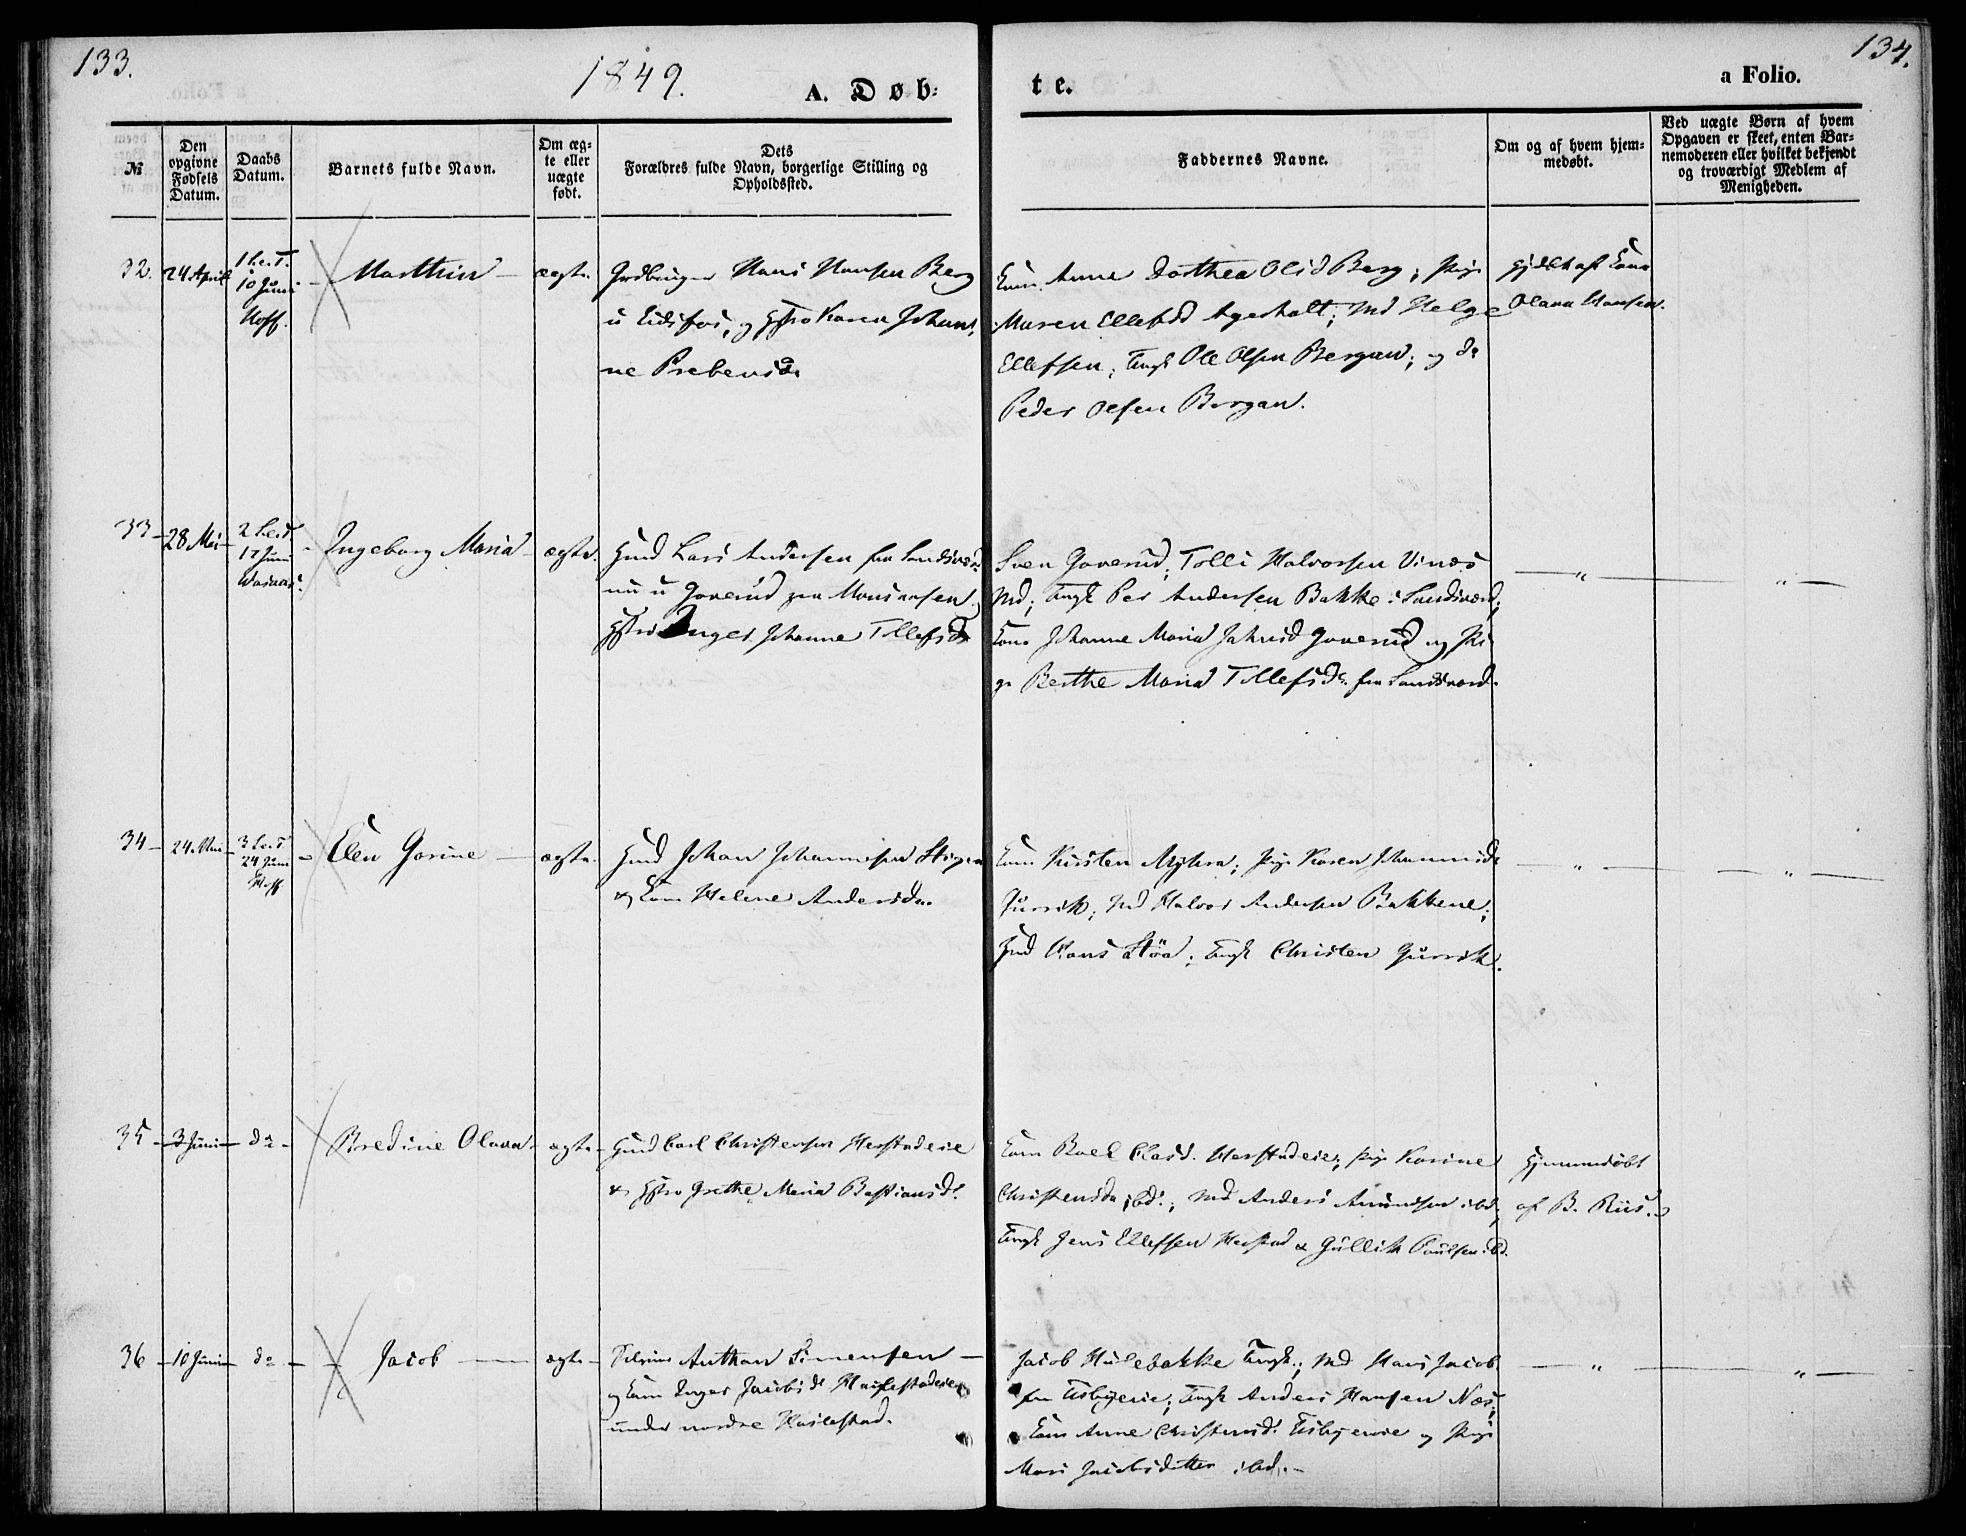 133.
1849.
A. Døb-
te.
a Folio.
134.
№
Den opgivne Fødsels Datum.
Daabs Datum.
Barnets fulde Navn.
Om ægte eller uægte født.
Dets Forældres fulde Navn, borgerlige Stilling og Opholdssted.
Faddernes Navne.
Om og af hvem hjemmedøbt.
Ved uægte Børn af hvem Opgaven er skeet, enten Barnemoderen eller hvilket bekjendt og troværdigt Medlem af Menigheden.
32. 24 April 10 Juni Hoff. Marthin ægte.
Hans Hansen Berg
u Eidsfos, og Hstro Karen Johan-
ne Prebensd.
Kone Anne Dorthea Olsd Berg; Pige
Maren Ellefsd ; Md Helge
Ellefsen; Ungk Ole Olsen Bergan; og do
Peder Olsen Bergan.
Olava Hansen.
33 28 Mai 17 Juni Ingeborg Maria ægte.
Hmd Lars Andersen fra Sandsværd
nu u Goverud
Hstro Inger Johanne Tollefsd
Sven Goverud; Tolli Halvorsen Vinæs
Md; Ungk Per Andersen Bakke i Sandsværd;
Kone Johanne Maria Goverud og Pi-
ge Berthe Maria Tollefsd. fra Sandsværd.
34 24 Mai 24 Juni Hoff Elen Gorine ægte.
Hmd Johan Johannesen
og Kone Helene Andersda.
Kone Kirsten Myhra; Pige Karen Johannesd
; Md Halvor Andersen Bakkene;
Hmd Hans Støa; Ungk Christen
35 3 Juni do Bredine Olava ægte
Hmd Carl Christensen Herstadeie
& Hstro Grethe Maria Bastiansd.
Kone Boel Clasd. Herstadeie; Pige Karine
Christensda ibd.; Md Anders Amundsen ibd;
Ungk Jens Ellefsen Herstad & Gullik Paulsen ibd.
Hjemmedøbt
af B. Riis.
36 10 Juni do Jacob ægte
Anthon Simensen
og Kone Inger Jacobsd
under nordre Haslestad.
Jacob Hulebakke Ungk.; Md Hans Jacob-
sen ; Ungk Anders Hansen Næs;
Kone Anne Christensd. og Pige
Mari Jacobsdatter ibd.